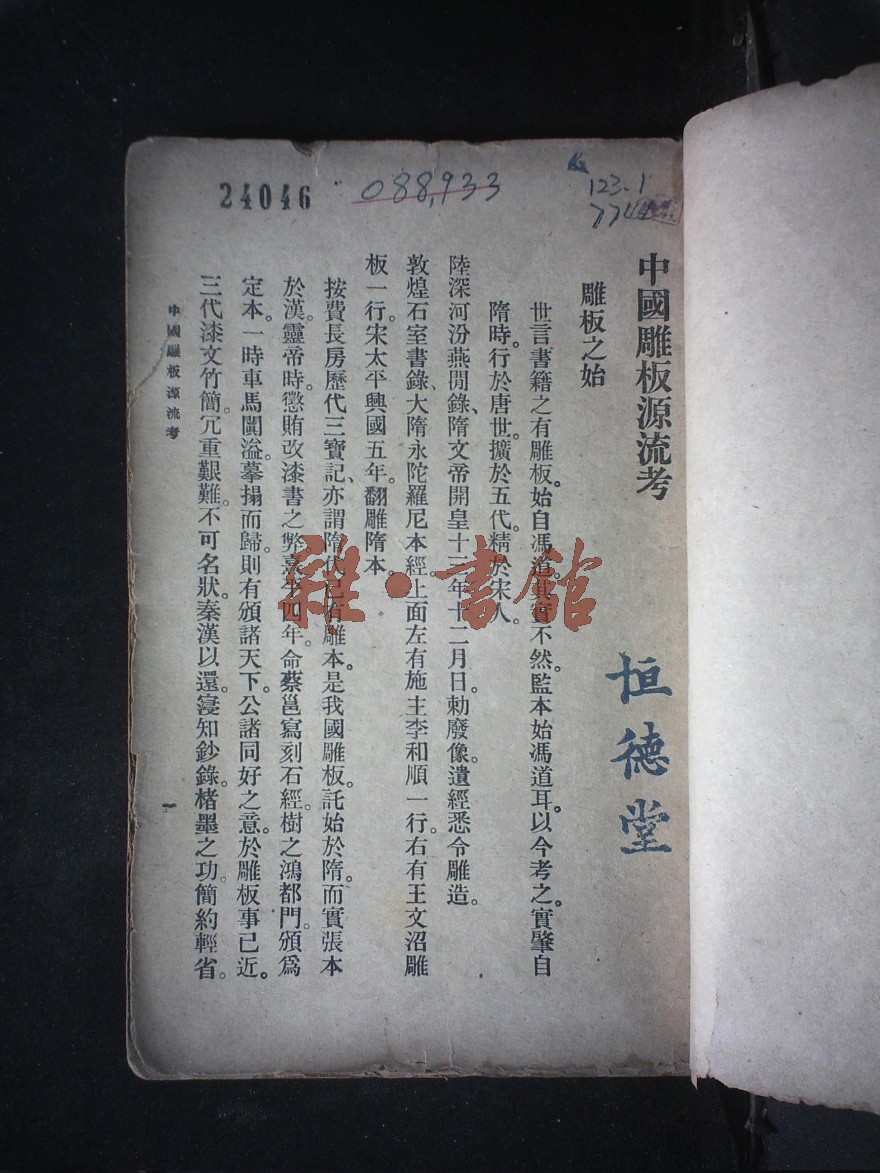 24046
088,933
123.1
中國雕板源流考
雕板之始
世言書籍之有雕板。始自馮道。其實不然。監本始馮道耳。以今考之。實肇自
隋時。行於唐世。擴於五代。精於宋人。
陸深河汾燕閒錄、隋文帝開皇十三年十二月日。勅廢像。遺經悉令雕造。
敦煌石室書錄、大隋永陀羅尼本經。上面左有施主李和順一行。右有王文沼雕
板一行。宋太平興國五年。翻雕隋本。
按費長房歷代三寶記、亦謂隋代已有雕本。是我國雕板。託始於隋。而實張本
於漢。靈帝時。懲賄改漆書之弊。熹平四年。命蔡邕寫刻石經。樹之鴻都門。頒爲
定本。一時車馬闐溢。摹搨而歸。則有頒諸天下。公諸同好之意。於雕板事已近。
三代漆文竹簡。冗重艱難。不可名狀。秦漢以還。寖知鈔錄。楮墨之功。簡約輕省。
中國雕板源流考
一
恒德堂
雜·書館